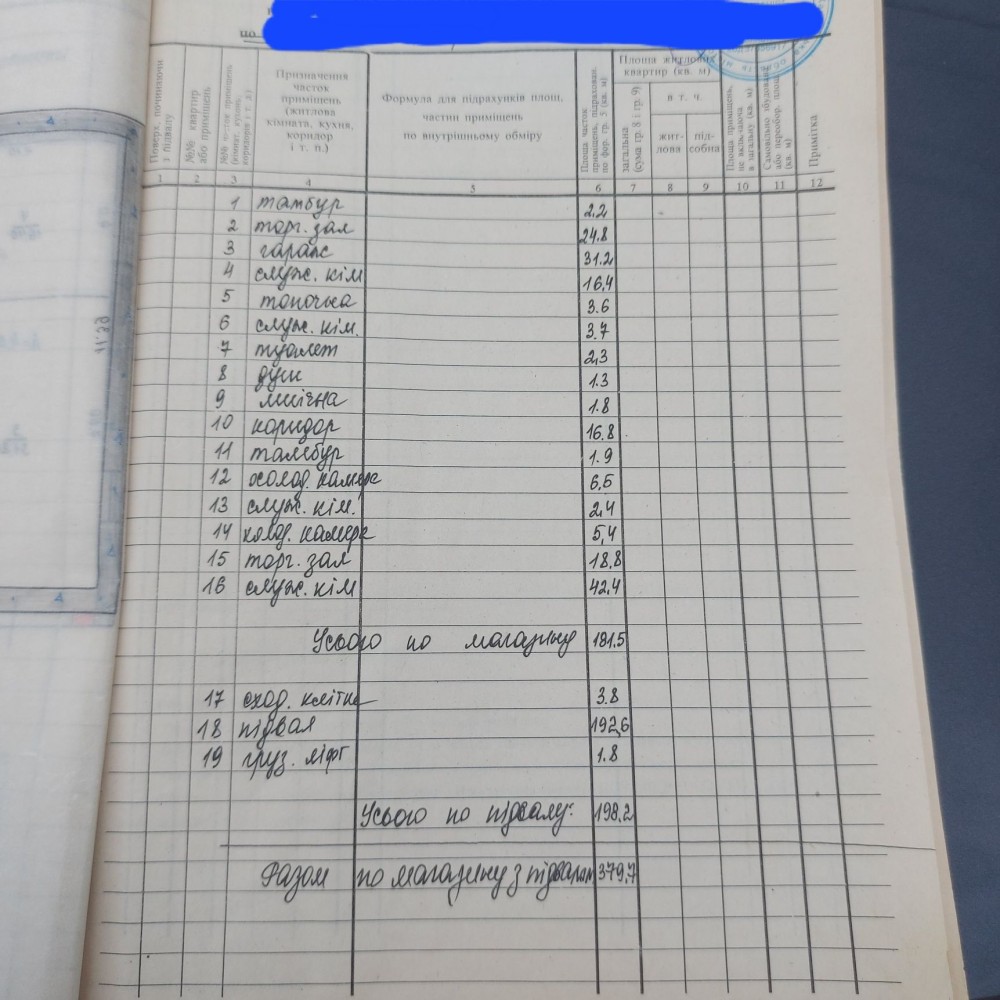 по
Поверх, починаючи з підвалу
№№ квартир або приміщень
№№ часток приміщень (кімнат, кухня, коридорів і т. д.)
Призначення часток приміщень (житлова кімната, кухня, коридор і т. п.)
Формула для підрахунків площ, частин приміщень по внутрішньому обміру
Площа часток приміщень, підрахован. по фор. гр. 5 (кв. м)
Площа житлових квартир (кв. м)
загальна (сума гр. 8 і гр. 9)
в т. ч.
жит- лова
під- собна
Площа приміщень, не включ. в загальну (кв. м)
Самовільно збудована або переобор. площа (кв. м)
Примітка
1 2 3 4 5 6 7 8 9 10 11 12
1 тамбур 2.2
2 торг. зал 24.8
3 гараж 31.2
4 служ. кім 16.4
5 топочна 3.6
6 служ. кім. 3.7
7 туалет 2,3
8 душ 1.3
9 миїчна 1.8
10 коридор 16.8
11 тамбур 1.9
12 холод. камера 6.5
13 служ. кім. 2,4
14 холод. камера 5,4
15 торг. зал 18.8
16 служ. кім 42.4
Усього по магазину 181.5
17 сход. клітка 3.8
18 підвал 192,6
19 груз. ліфт 1.8
Усього по підвалу: 198.2
Разом по магазину з підвалом 379,7
11.39